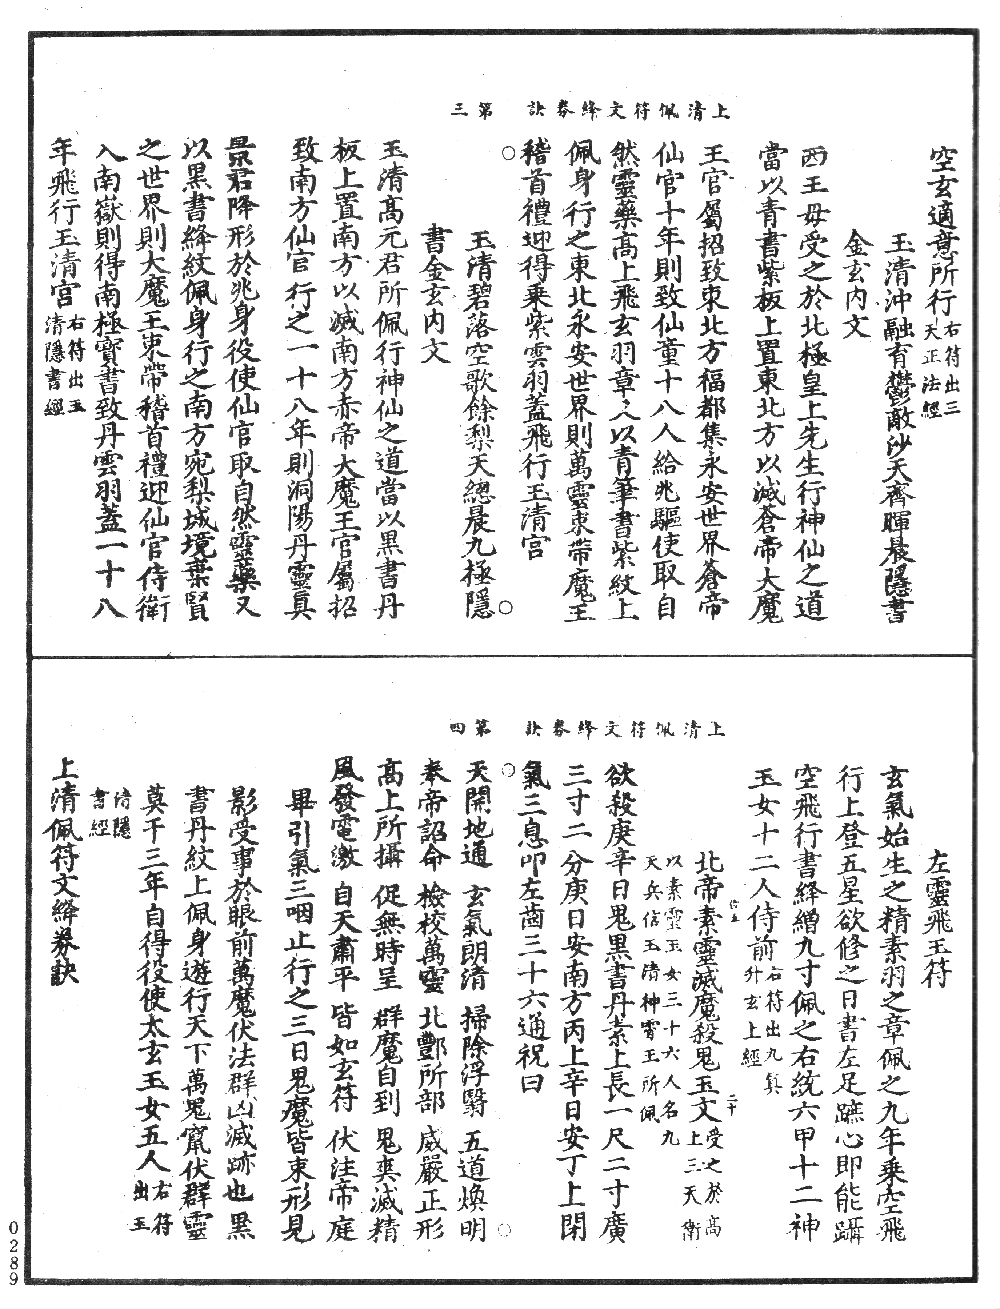 上清佩符文絳券訣　第三
空玄適意所行右符出三
天正法經
玉清沖融育鬱敵沙天齊暉晨隱書
金玄内文
西王母受之於北極皇上先生行神仙之道
當以青書紫板上置東北方以滅蒼帝大魔
王官屬招致東北方福都集永安世界蒼帝
仙官十年則致仙童十八人給兆驅使取自
然靈藥高上飛玄羽章又以青筆書紫紋上
佩身行之東北永安世界則萬靈束帶魔王
稽首禮迎得乘紫雲羽蓋飛行玉清宫
玉清碧落空歌餘梨天總晨九極隱
書金玄内文
玉清高元君所佩行神仙之道當以黑書丹
板上置南方以滅南方赤帝大魔王官屬招
致南方仙官行之一十八年則洞陽丹靈真
景君降形於兆身役使仙官取自然靈藥又
以黑書絳紋佩身行之南方宛梨城境棄賢
之世界則大魔王束帶稽首禮迎仙官侍衛
入南嶽則得南極寶書致丹雲羽蓋一十八
年飛行玉清宫右符出玉
清隱書經
上清佩符文絳券訣　第四
左靈飛玉符
玄氣始生之精素羽之章佩之九年乘空飛
行上登五星欲修之日書左足蹠心即能躡
空飛行書絳繒九寸佩之右統六甲十二神
玉女十二人侍前右符出九真
升玄上經
北帝素靈滅魔殺鬼玉文受之於高
上三天衛
以素靈玉女三十六人名九
天兵信玉清神霄王所佩
欲殺庚辛日鬼黑書丹素上長一尺二寸廣
三寸二分庚日安南方丙上辛日安丁上閉
氣三息叩左齒三十六通祝曰
天開地通　玄氣朗清　掃除浮翳　五道煥明
奉帝詔命　檢校萬靈　北酆所部　威嚴正形
高上所攝　促無時呈　群魔自到　鬼爽滅精
風發電激　自天肅平　皆如玄符　伏注帝庭
畢引氣三咽止行之三日鬼魔皆束形見
影受事於眼前萬魔伏法群凶滅跡也黑
書丹紋上佩身遊行天下萬鬼竄伏群靈
莫干三年自得役使太玄玉女五人右符
出玉
清隱
書經
上清佩符文絳券訣
0289